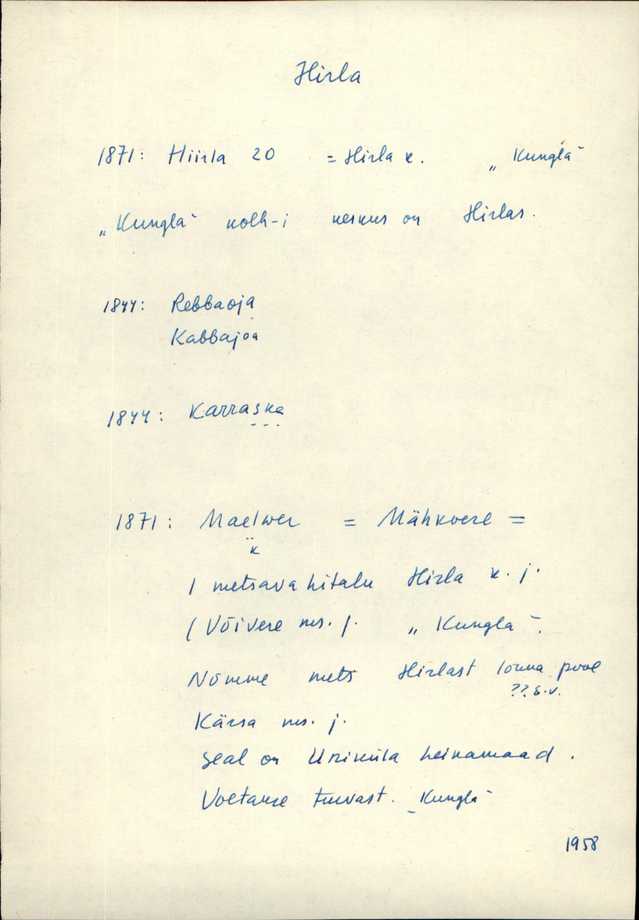 Hirla
1871: Hiirla 20 = Hirla k. „Kungla"
„Kungla" kolh-i keskus on Hirlas.
1844: Rebbaoja
Kabbajoa
1844: Karraska
1871: Maekwer = Mähkvere =
1 metsavahitalu Hirla k. j.
(Võivere ms. j. „Kungla".
Nõmme mets Hirlast lõuna pool
??S.V.
Kärsa ms. j.
Seal on Uniküla heinamaad.
Võetakse turvast. „Kungla"
1958